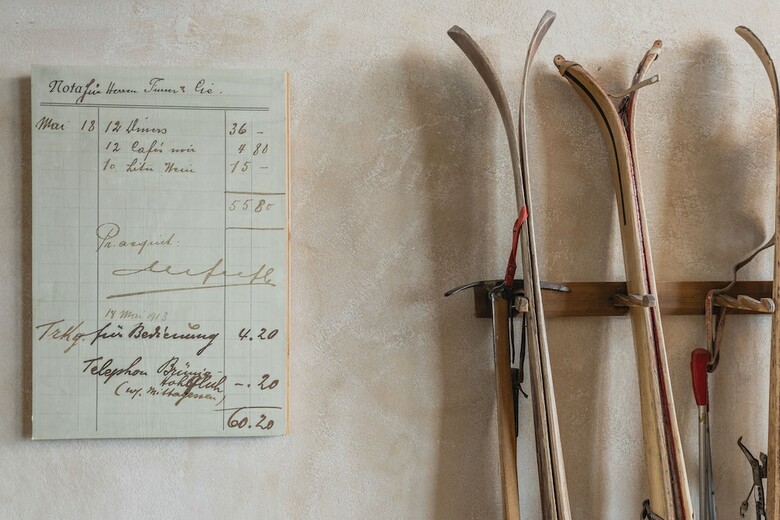 Nota für Herren Furrer & Cie.
Mai 18 12 Diners 36 –
12 Cafés noir 4 80
10 Liter Wein 15 –
55 80
Pr. acquit.
18 Mai 1913
Trkg. für Bedienung 4.20
Telephon Brünig-
Hohfluh –. 20
(w. Mittagessen)
60.20